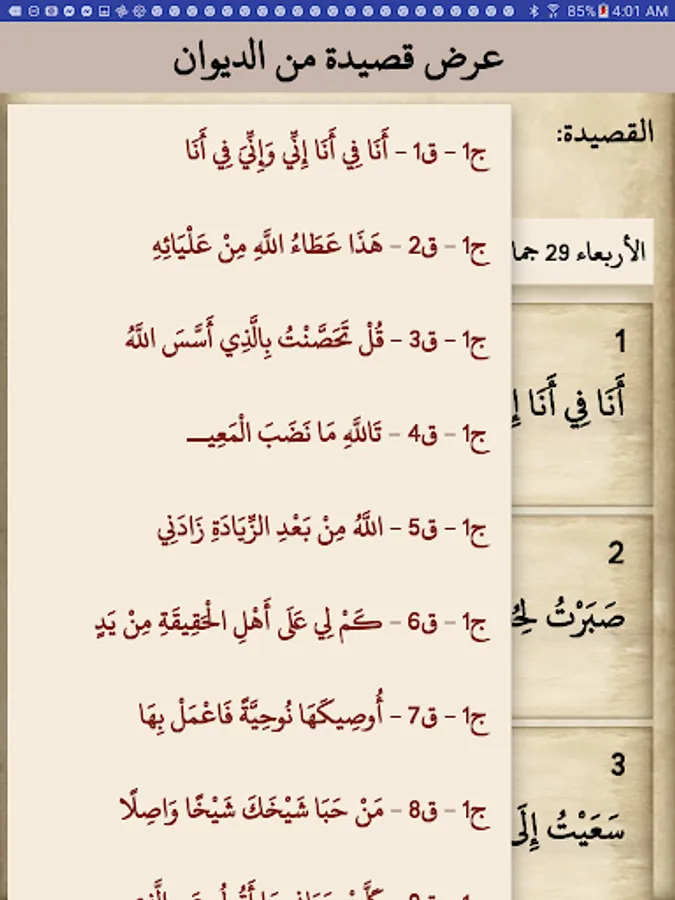 85% 4:01 AM
عرض قصيدة من الديوان
القصيدة:
ج1 - ق1 - أَنَا فِي أَنَا إِنِّي وَإِنِّيَ فِي أَنَا
ج1 - ق2 - هَذَا عَطَاءُ اللَّهِ مِنْ عَلْيَائِهِ
ج1 - ق3 - قُلْ تَحَصَّنْتُ بِالَّذِي أَسَّسَ اللَّهُ
ج1 - ق4 - تَاللَّهِ مَا نَضَبَ الْمَعِيـــ
ج1 - ق5 - اللَّهُ مِنْ بَعْدِ الزِّيَادَةِ زَادَنِي
ج1 - ق6 - كَمْ لِي عَلَى أَهْلِ الْحَقِيقَةِ مِنْ يَدٍ
ج1 - ق7 - أُوصِيكَهَا نُوحِيَّةً فَاعْمَلْ بِهَا
ج1 - ق8 - مَنْ حَبَا شَيْخَكَ شَيْخًا وَاصِلًا
الأربعاء 29
1
أَنَا فِي أَنَا
2
صَبَرْتُ
3
سَعَيْتُ إِلَى